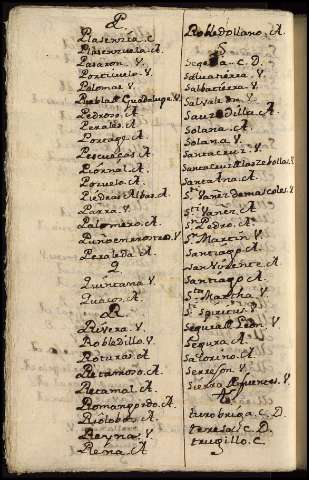 P
Plasenzia. C.
Plasenzuela. A.
Pasaron. V.
Portezuelo. V.
Palomas. V.
Puebla de Guadalupe. V.
Pedroso. A.
Perales. A.
Portage. A.
Pescueças. A.
Piornal. A.
Pozuelo. A.
Piedras Albas. A.
Parra. V.
Palomero. A.
Peraleda. A.
Q
Quintana. V.
Quacos. A.
R
Rivera. V.
Robledillo. V.
Roturas. A.
Retamoso. A.
Retamal. A.
Romangordo. A.
Riolobos. A.
Reyna. V.
Rena. A.
Robledollano. A.
S
Segeda. C. D.
Salvatierra. V.
Salbatierra. V.
Salvaleon. V.
Sauzedilla. A.
Solana. A.
Solana. V.
Santa Cruz. V.
Santa Cruz de las Zebollas. V.
Santa Ana. A.
Sti Yañez. A.
Sn Pedro. A.
Sn Martin. V.
Santiago. A.
San Vizente. A.
Santiago. A.
Sta Martha. V.
Segura de Leon. V.
Segura. A.
Satorino. A.
Serrejon. V.
Sierra de fuentes. V.
T
turobriga. C. D.
teresa. C. D.
trugillo. C.